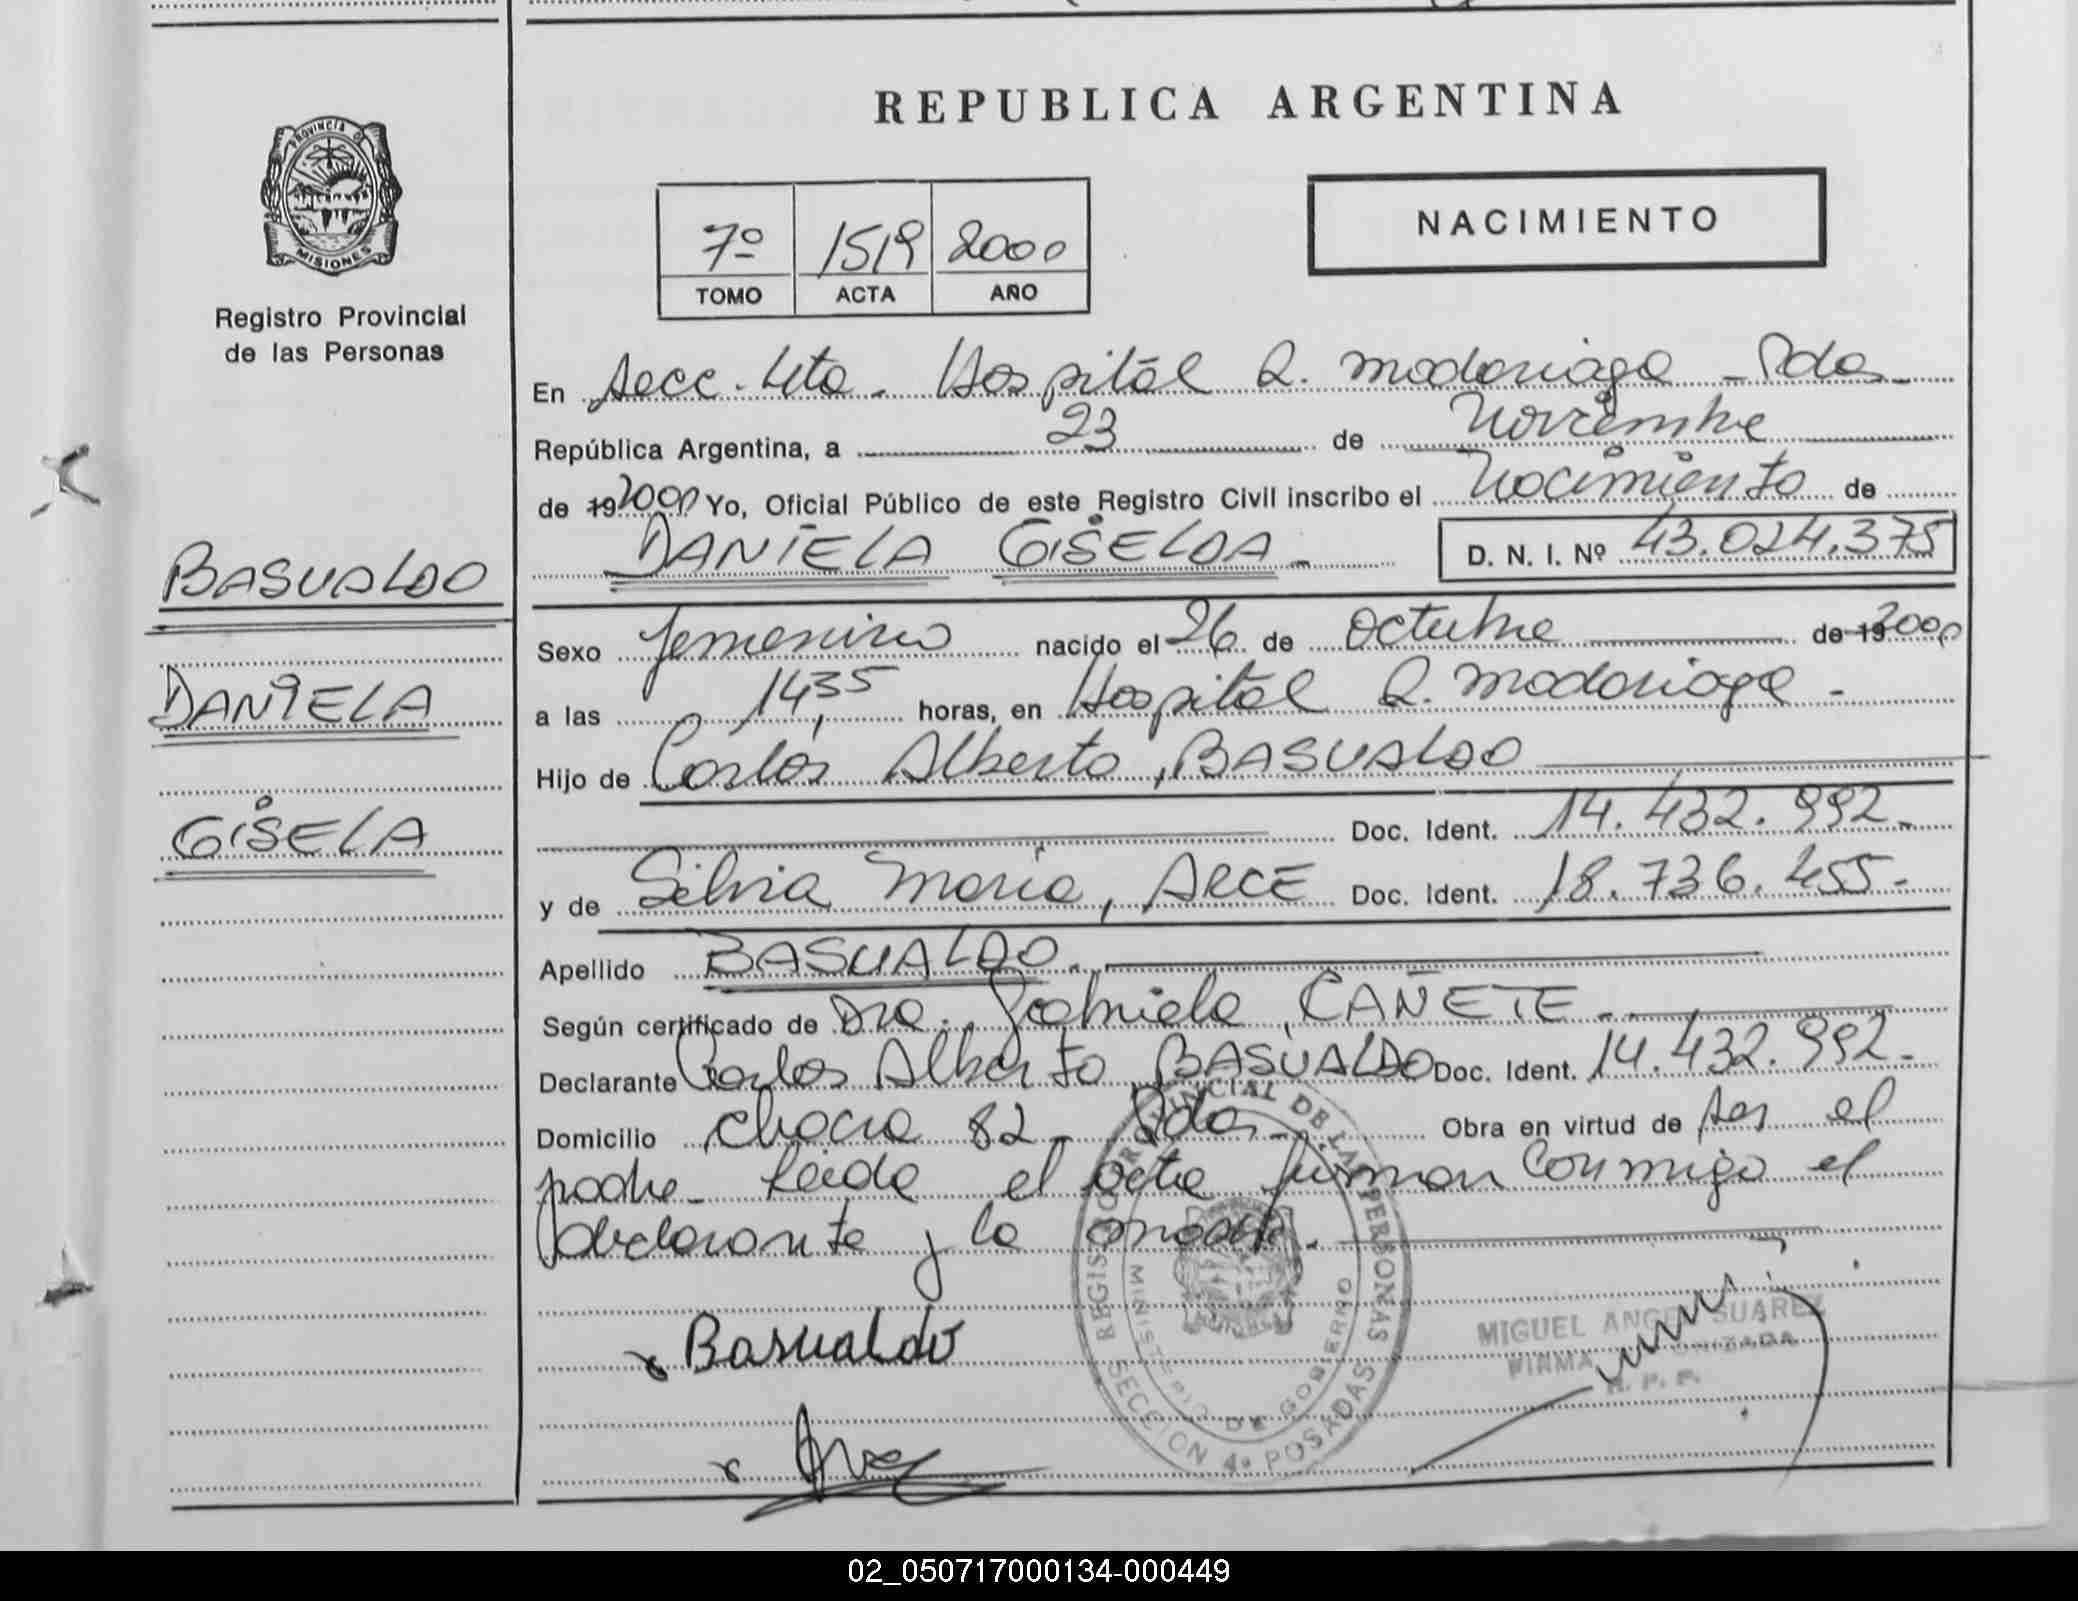 REPUBLICA ARGENTINA
PROVINCIA DE
MISIONES
Registro Provincial
de las Personas
7º 1519 2000
TOMO ACTA AÑO
NACIMIENTO
En Secc. 4ta. Hospital R. Madariaga - Pdas -
República Argentina, a 23 de Noviembre
de 19 2000 Yo, Oficial Público de este Registro Civil inscribo el Nacimiento de
DANIELA GISELDA - D. N. I. Nº 43.024.375
BASUALDO
DANIELA
GISELA
Sexo femenino nacido el 26 de Octubre de 19 2000
a las 14,35 horas, en Hospital R. Madariaga -
Hijo de Carlos Alberto, BASUALDO
Doc. Ident. 14.432.992.-
y de Silvia María, ARCE Doc. Ident. 18.736.455.-
Apellido BASUALDO.
Según certificado de Dra. Gabriela, CAÑETE.-
Declarante Carlos Alberto BASUALDO Doc. Ident. 14.432.992.-
Domicilio chacra 82 - Pdas - Obra en virtud de ser el
padre - Leída el acta firman conmigo el
declarante y la madre.
REGISTRO PROVINCIAL DE LAS PERSONAS
MINISTERIO DE GOBIERNO
SECCION 4ª POSADAS
Basualdo
MIGUEL ANGEL SUAREZ
FIRMA AUTORIZADA
R. P. P.
Arce
02_050717000134-000449